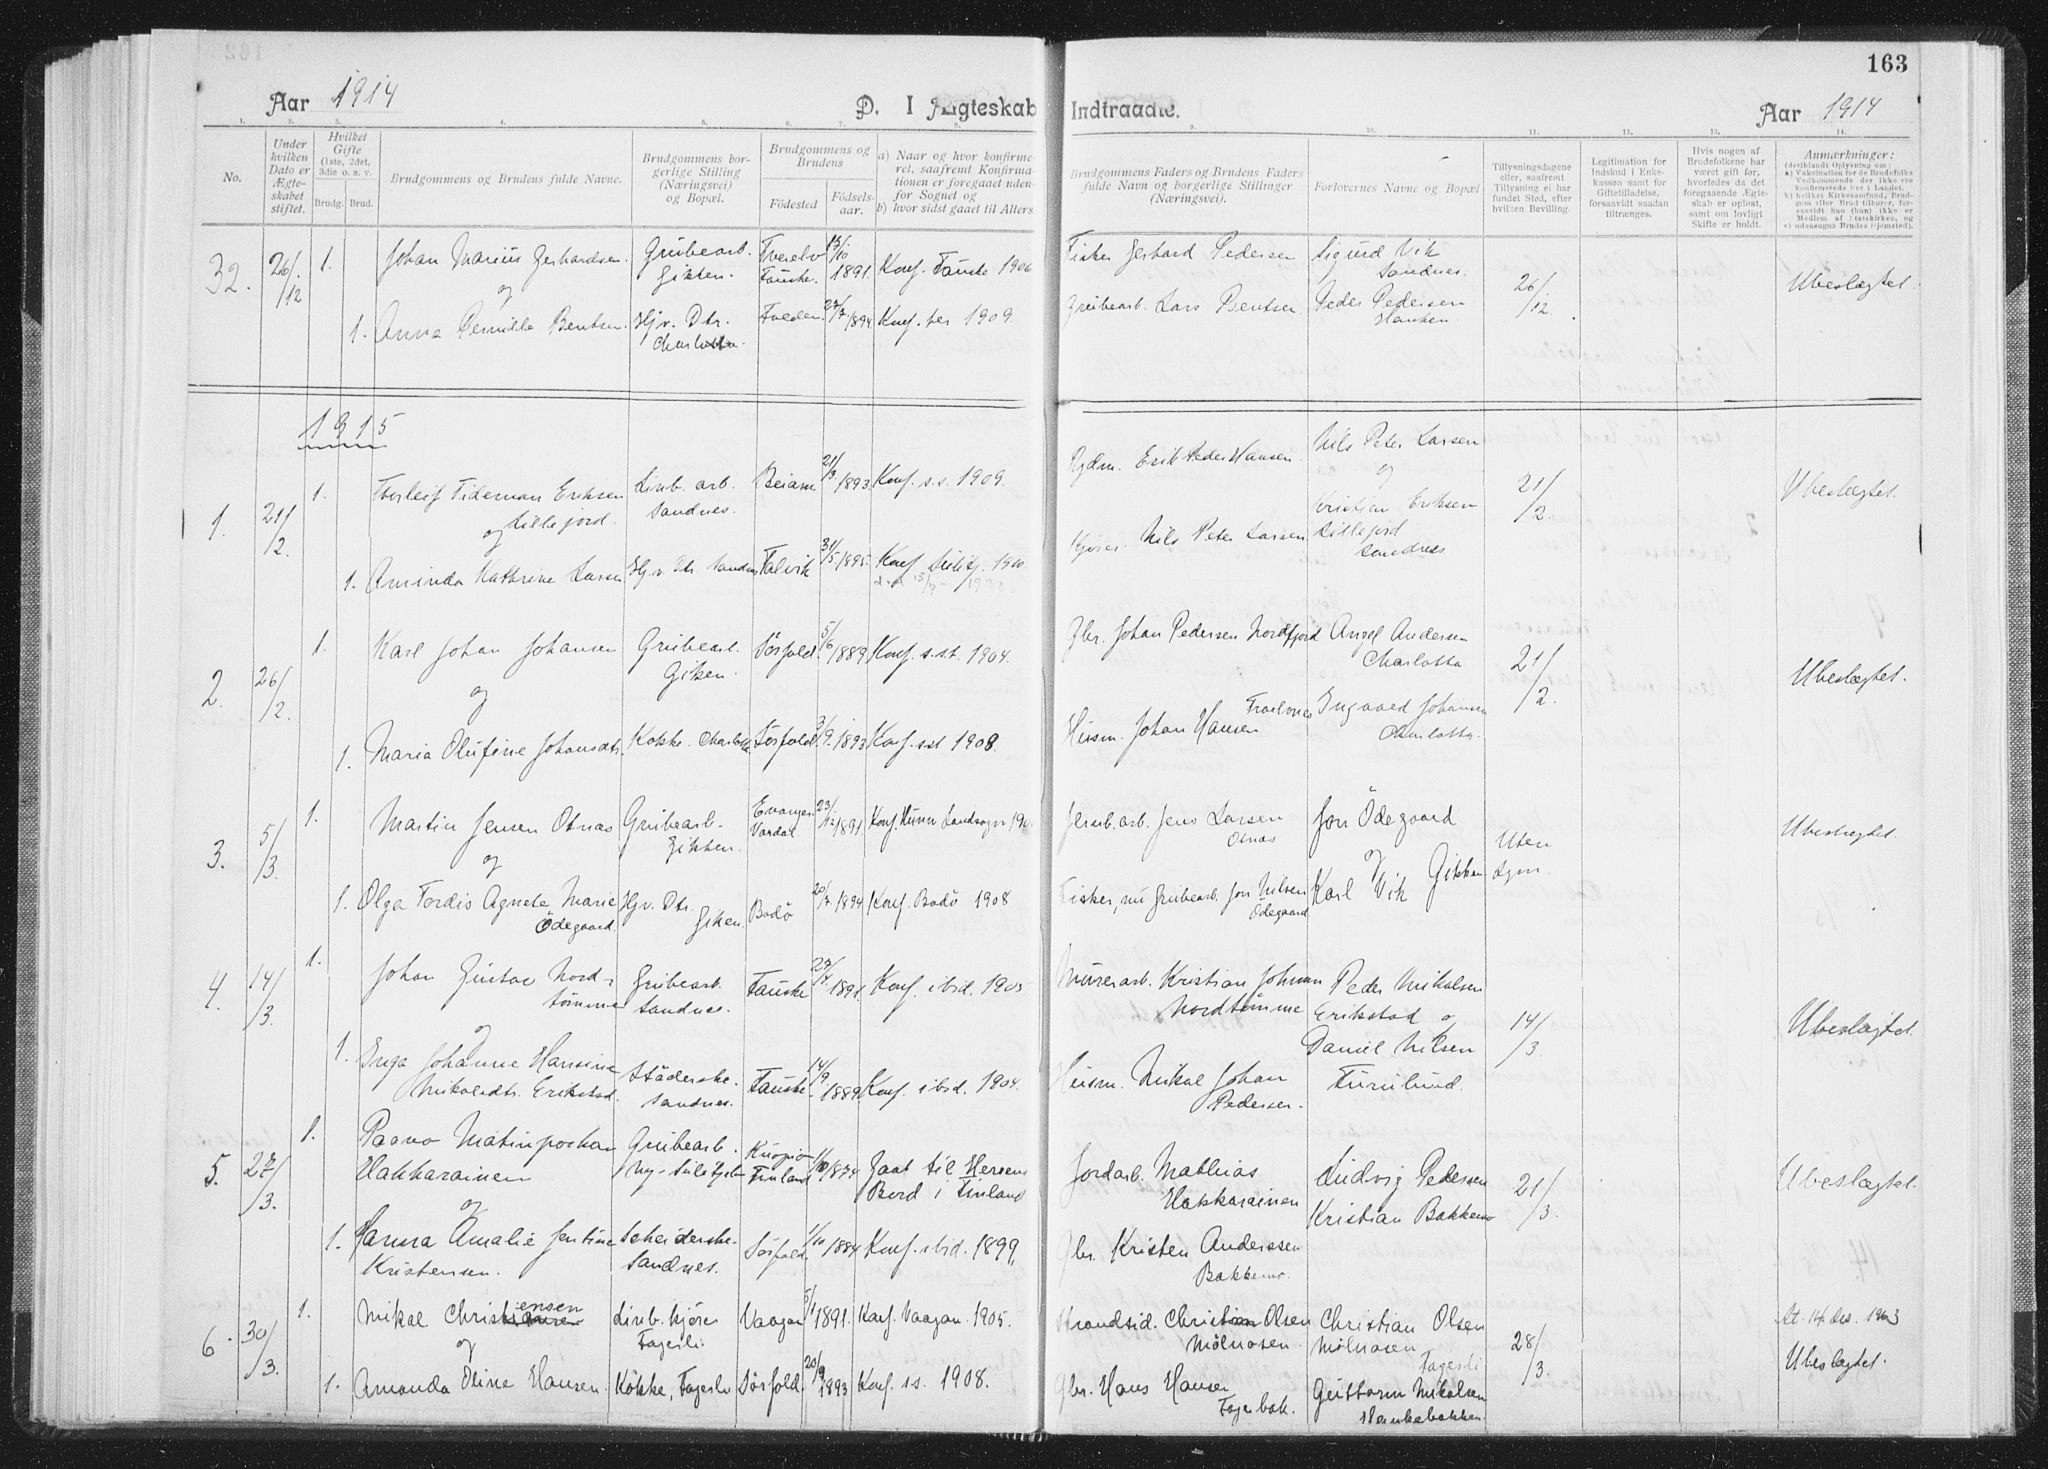 163
Aar 1914
D. I Ægteskab Indtraadte.
Aar 1914
1. 2. 3. 4. 5. 6. 7. 8. 9. 10. 11. 12. 13. 14.
No.
Under hvilken Dato er Ægteskabet stiftet.
Hvilket Gifte (1ste, 2det, 3die o. s. v.
Brudg. Brud.
Brudgommens og Brudens fulde Navne.
Brudgommens borgerlige Stilling (Næringsvei) og Bopæl.
Brudgommens og Brudens
Fødested
Fødselsaar.
a) Naar og hvor konfirmeret, saafremt Konfirmationen er foregaaet udenfor Sognet og
b) hvor sidst gaaet til Alters
Brudgommens Faders og Brudens Faders fulde Navn og borgerlige Stillinger (Næringsvei).
Forlovernes Navne og Bopæl
Tillysningsdagene eller, saafremt Tillysning ei har fundet Sted, efter hvilken Bevilling.
Legitimation for Indskud i Enkekassen samt for Giftetilladelse, forsaavidt saadan tiltrænges.
Hvis nogen af Brudefolkene har været gift før, hvorledes da det foregaaende Ægteskab er opløst, samt om lovligt Skifte er holdt.
Anmærkninger:
(deriblandt Oplysning om:
a) Vakcination for de Brudefolks Vedkommende der ikke ere konfirmerede her i Landet.
b) hvilket Kirkesamfund, Brudgom eller Brud tilhører, forsaavidt han (hun) ikke er Medlem af Statskirken, og
c) udensogns Brudes Hjemsted).
32. 26/12 1. Johan Marius Gerhardsen Grubearb. Giken. Tverelv Fauske. 13/10 1891 Konf. Fauske 1906 Fisker Gerhard Pedersen Sigurd Vik Sandnes. 26/12. Ubeslægtet.
og
1. Anna Pernille Bentsen Hj.v. Dtr. Charlotta. 1894 Konf. her 1909 Grubearb. Lars Bentsen. Peder Pedersen Hanken.
1915
1. 21/2. 1. Thorleif Tideman Eriksen Lillejord. Linb. arb. Sandnes. Beiarn 21/3 1893. Konf. s.s. 1909. Erik Peder Hansen. Nils Peter Larsen og 21/2. Ubeslægtet.
og
1. Aminda Kathrine Larsen Hj.v. Dtr. Sandnes Talvik 31/5 1895. Konf. Sulitj. 1910. Kjører. Nils Peter Larsen Kristian Eriksen Lillejord Sandnes
2. 26/2. 1. Karl Johan Johansen Grubearb. Giken. Sörfold. 5/6 1889 Konf. s.st. 1904. Gbr. Johan Pedersen Nordfjord Angel Andersen Charlotta 21/2. Ubeslægtet.
og
1. Maria Olufine Johansdtr. Kokke. Charlotta Sörfold 3/9. 1893 Konf. sst 1908. Husm. Johan Hansen Ingvard Johansen Charlotta.
3. 5/3. 1. Martin Jensen Otnas Grubearb. Gikken. Vardal 23/12 1891 Jernb.arb. Jens Larsen Otnas Jon Ödegaard Uten Lysn. Ubeslægtet.
og
1. Olga Tordis Agnete Marie Ödegaard. Hj.v. Dtr. Giken. Bodö 20/7 1894 Konf. Bodö 1908 Fisker, nu Grubearb. Jon Nilsen Ödegaard og Karl Vik Gikken
4. 14/3. 1. Johan Gustav Nordtömme Grubearb. Sandnes. Fauske 1891. Konf. ibid. 1905 Murerarb. Kristian Johnsen Nordtömme Peder Mikalsen Erikstad og 14/3. Ubeslægtet.
og
1. Inga Johanne Hansine Mikaldtr. Erikstad. Sandnes. Fauske 14/9. 1889. Konf. ibid. 1904. Husm. Mikal Johan Pedersen. Daniel Nilsen Furulund.
5. 27/3. 1. Paavo Matinpoikan Hakkarainen Grubearb. Ny-Sulitjelma Kuopio Finland 1874 Gaat til Herrens Bord i Finland Jordarb. Mathias Hakkarainen Ludvig Pedersen Kristian Bakkemo 21/3. Ubeslægtet.
og
1. Hanna Amalie Jentine Kristensen. Sandnes. Sörfold 1/10 1884 Konf. ibid. 1899. Gbr. Kristen Anderssen Bakkemo.
6. 30/3. 1. Mikal Christensen Linb. kjörer Fagerli Vaagan 5/1 1891. Konf. Vaagan. 1905. Strandsid. Christian Olsen Mölnosen. Christian Olsen Mölnosen 28/3. At. 14 des. 1963
og
1. Amanda Oline Hansen. Kökke, Fagerli Sörfold. 20/9 1893 Konf. s.s. 1908. Gbr. Hans Hansen Fagerbak. Fagerli Guttorm Mikalsen Hankebakken. Ubeslægtet.